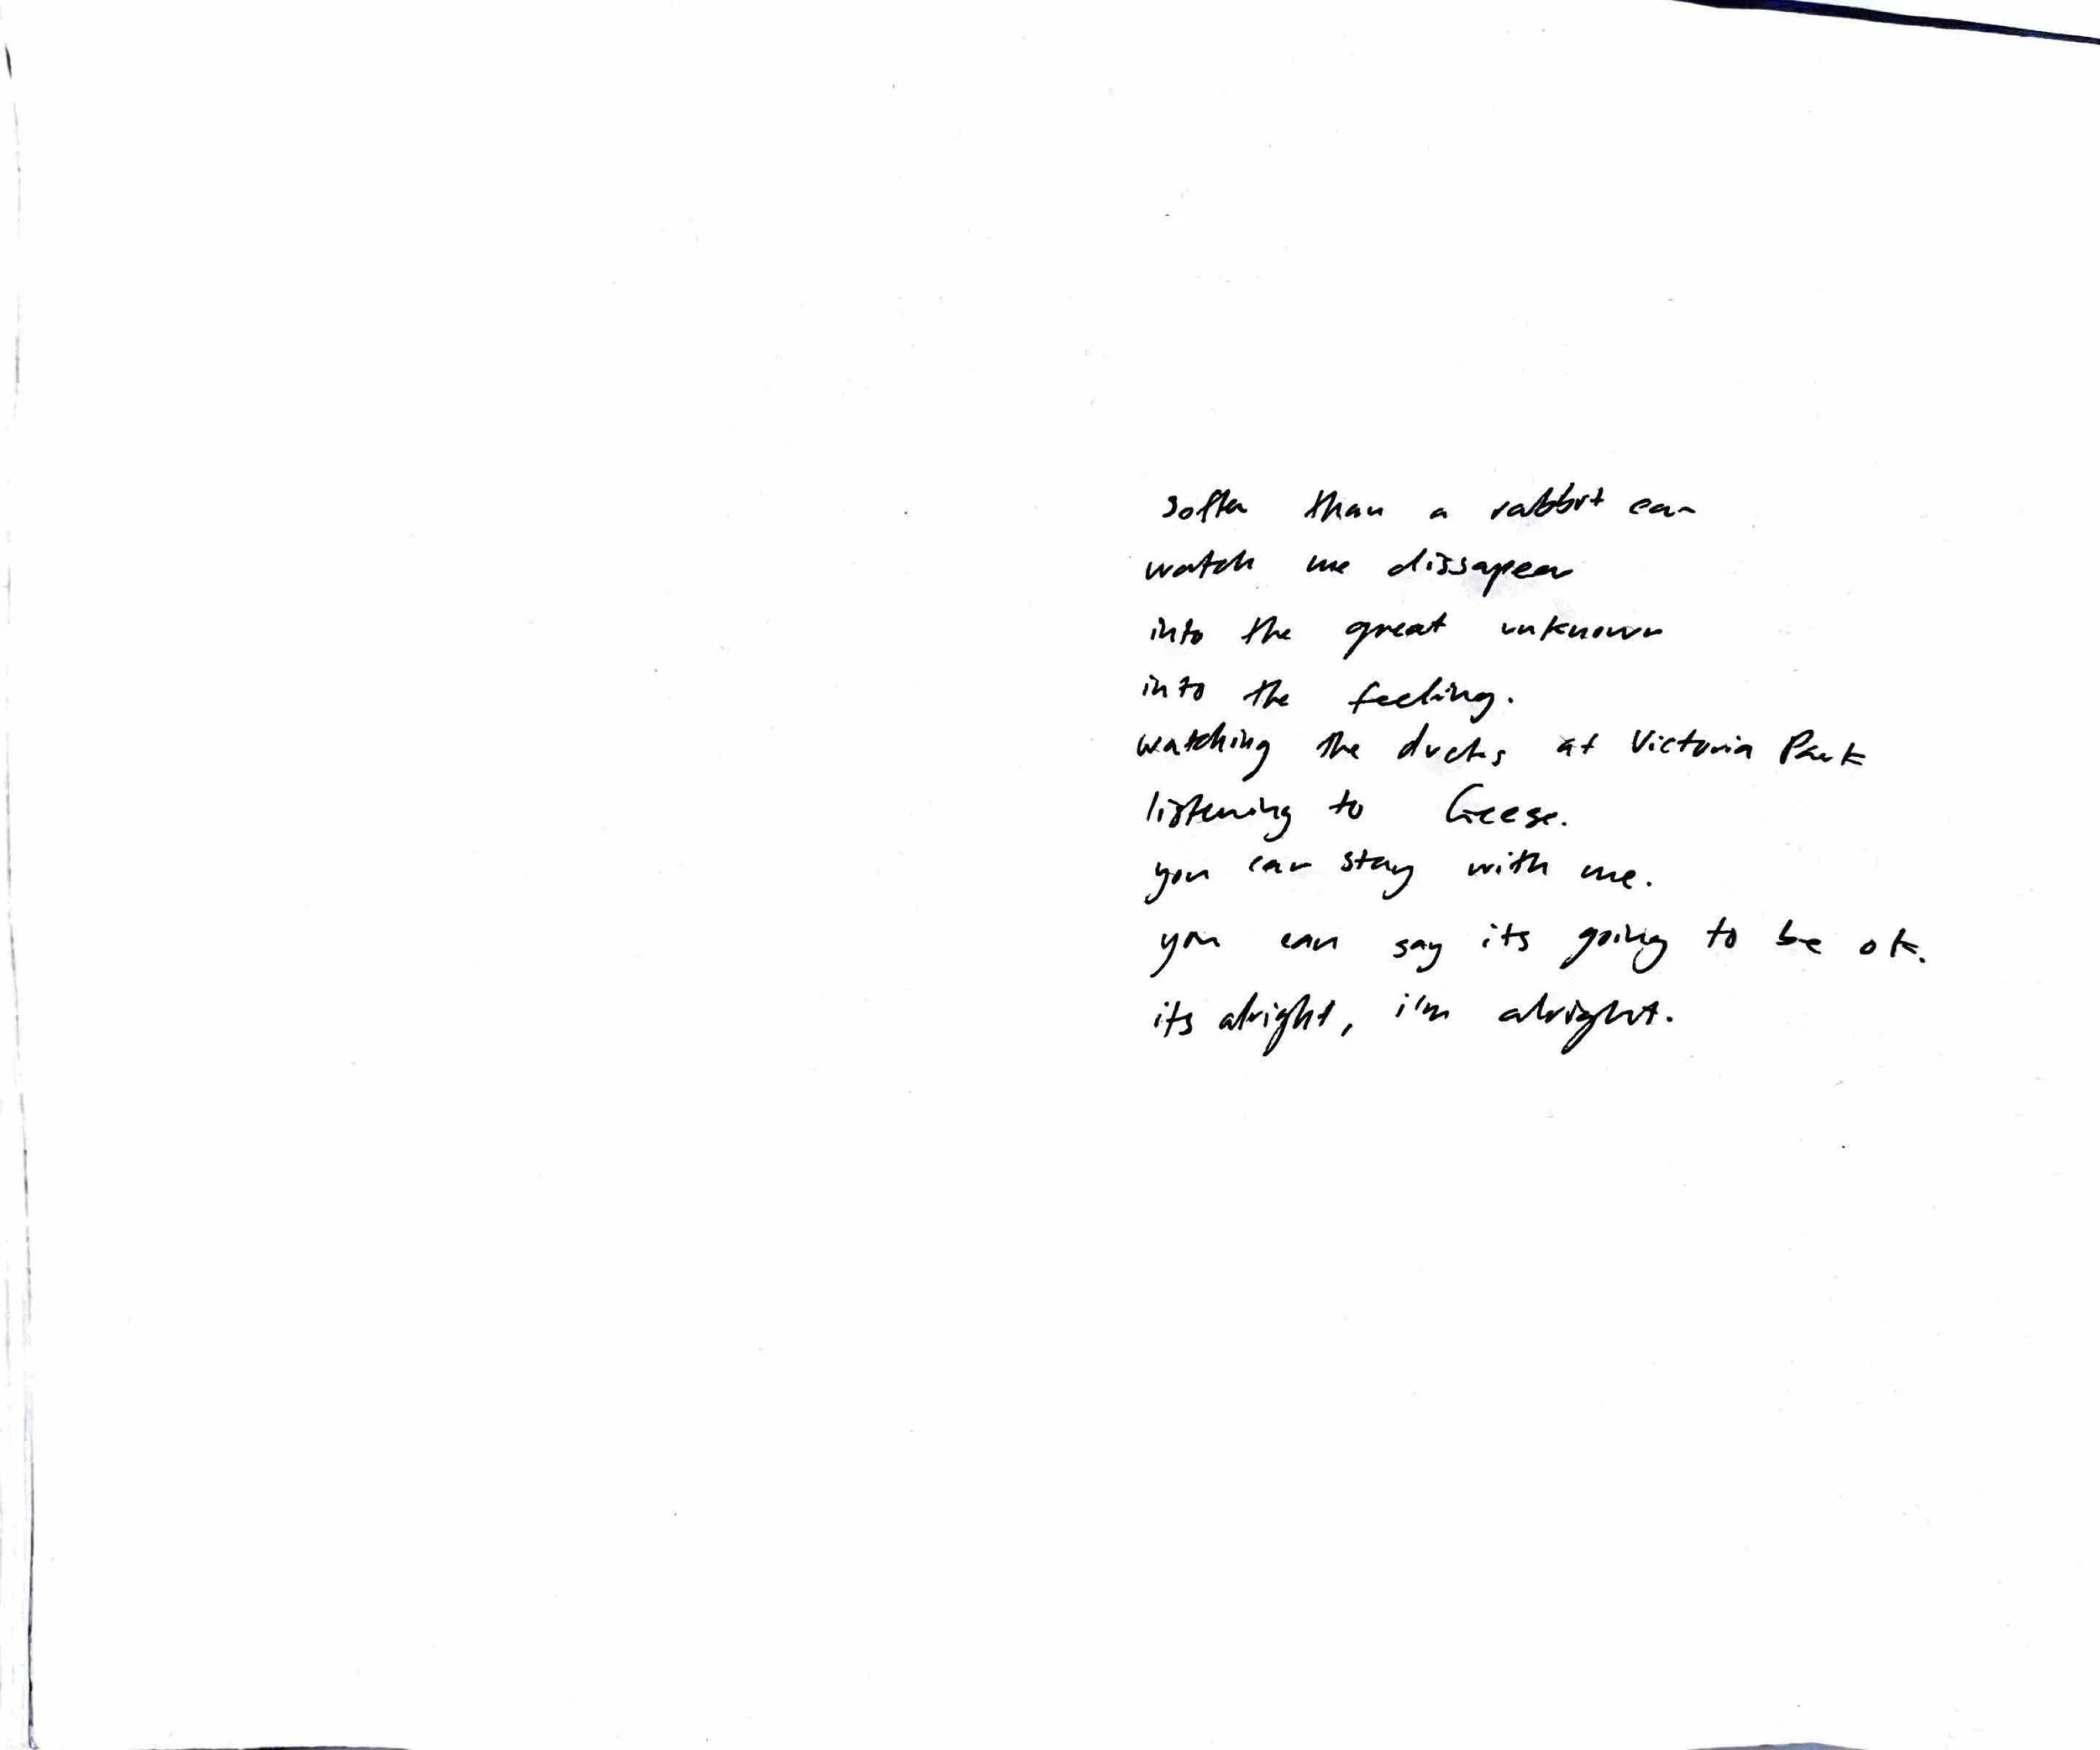 softer than a rabbit ear
watch me dissapear
into the great unknown
into the feeling.
watching the ducks at Victoria Park
listening to Geese.
you can stay with me.
you can say its going to be ok.
its alright, i'm alright.